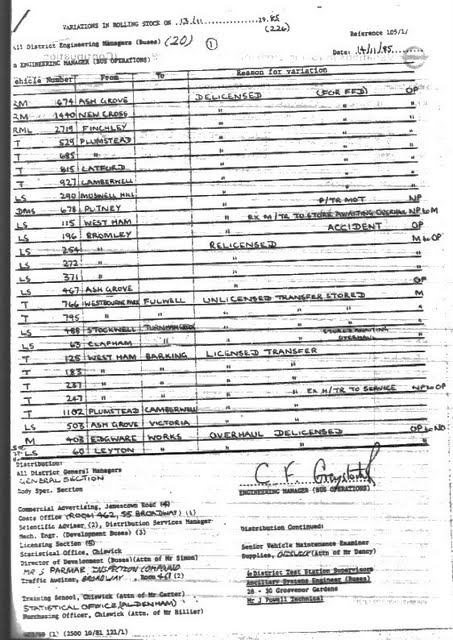 VARIATIONS IN ROLLING STOCK ON 13/11 1985
(226)
All District Engineering Managers (Buses) (20) (1) Reference 105/1/
ENGINEERING MANAGER (BUS OPERATIONS) Date: 14/11/85
Vehicle Number From To Reason for variation
RM 674 ASH GROVE DELICENSED (FOR FFD) OP
RM 1440 NEW CROSS " " "
RML 2719 FINCHLEY " " "
T 529 PLUMSTEAD " " "
T 685 " " " "
T 815 CATFORD " " "
T 927 CAMBERWELL " " "
LS 290 MUSWELL HILL " " "
DMS 678 PUTNEY " P/TR MOT NP
LS 115 WEST HAM " EX M/TR TO STORE AWAITING OVERHAUL NP to M
LS 196 BROMLEY " ACCIDENT OP
LS 254 " RELICENSED M to OP
LS 272 " " "
LS 371 " " "
LS 467 ASH GROVE " OP
T 766 WESTBOURNE PARK FULWELL UNLICENSED TRANSFER STORED M
T 795 " " " " "
LS 488 STOCKWELL TURNHAM GREEN " " "
LS 63 CLAPHAM " " STORED AWAITING OVERHAUL "
T 125 WEST HAM BARKING LICENSED TRANSFER
T 183 " " " "
T 237 " " " "
T 247 " " " " EX M/TR TO SERVICE NP to OP
T 1102 PLUMSTEAD CAMBERWELL " "
LS 503 ASH GROVE VICTORIA " "
M 403 EDGWARE WORKS OVERHAUL DELICENSED OP to NO
LS 60 LEYTON " " " "
Distribution:
All District General Managers
GENERAL SECTION
Body Spec. Section
ENGINEERING MANAGER (BUS OPERATIONS)
Commercial Advertising, Jamestown Road
Costs Office (ROOM 462, 55 BROADWAY) (1)
Scientific Adviser, (2), Distribution Services Manager
Mech. Engr. (Development Buses) (3)
Licensing Section
Statistical Office, Chiswick
Director of Development (Buses)(Attn of Mr Simon)
MR J PARMAR INSPECTION COMPOUND
Traffic Auditor, BROADWAY. Room
Training School, Chiswick (Attn of Mr Carter)
STATISTICAL OFFICE (ALDENHAM)
Purchasing Officer, Chiswick (Attn of Mr Hillier)
(1) (2500 10/81 121/1)
Distribution Continued:
Senior Vehicle Maintenance Examiner
Supplies, CHISWICK (Attn of Mr Dancy)
4 District Test Station Supervisors
Ancillary Systems Engineer (Buses)
28 - 30 Grosvenor Gardens
Mr J Powell Technical